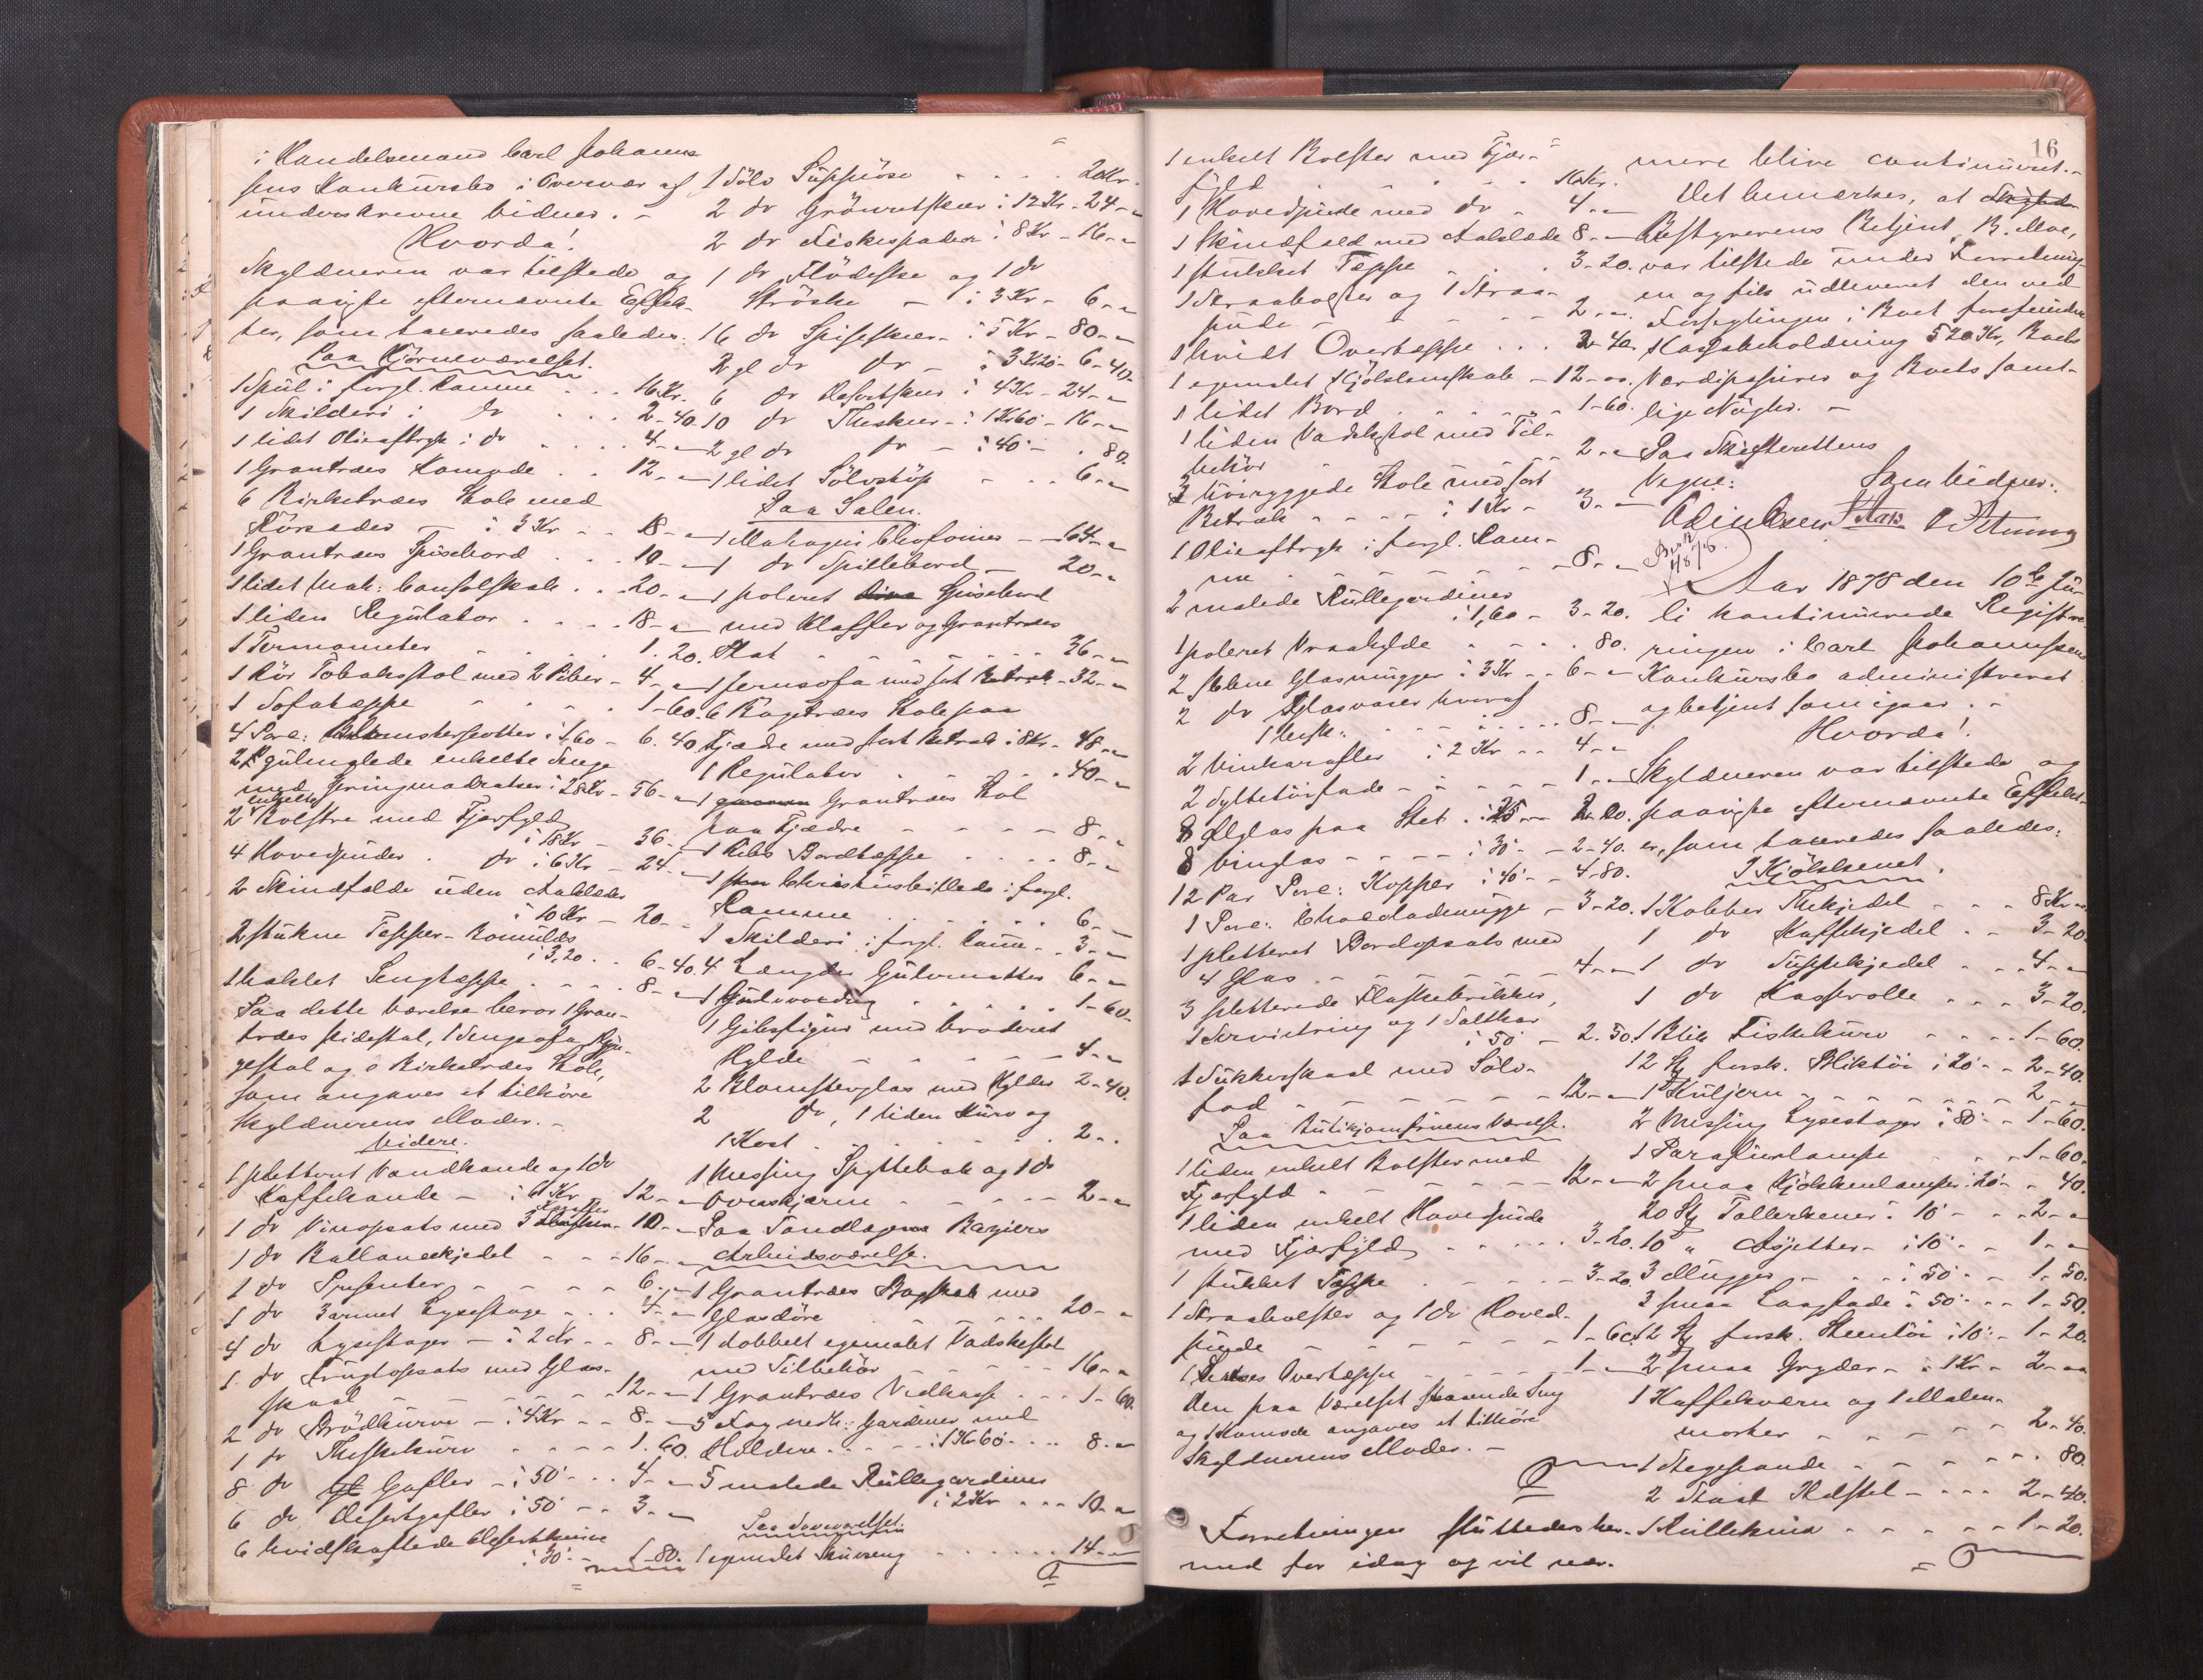 i Handelsmand Carl Johanns
sens Konkursbo i Overvær af
underskrevne Vidner. -
Hvorda!
Skyldneren var tilstede og
paaviste efternævnte Effek-
ter, som taxeredes saaledes:
Paa Hjørneværelset.
1 Speil i forgl. Ramme . . 16 Kr.
1 Skilderi i dr . . . 2-40
1 lidet Olieaftryk i dr . . . 4-"
1 Grantræes Komode . . 12-"
6 Birketræes Stole med
Rørsæder - i 3 Kr - - 18-"
1 Grantræes Spisebord . . 10-"
1 lidet Mah: Consolskab . . 20-"
1 liden Regulator . . . . 18-"
1 Termometer . . . . 1.20.
1 Rör Tobaksstol med 2 Piber - 4-"
1 Sofatæppe . . . . 1-60.
4 Porc: Blomsterpotter i 1,60 - 6.40
2 gulmalede enkelte Senge
med Springmadratser i 28 Kr - 56-"
2 enkelte Bolstre med Fjærfyld
i 18 Kr - 36-"
4 Hovedpuder . dr i 6 Kr - 24-"
2 Skindfelde uden Aaklæder
i 10 Kr - 20-"
2 stukne Tepper - Bomulds
i 3,20 . . 6-40
1 haklet Sengtæppe . . . . 8-"
Paa dette Værelse beror 1 Gran-
træes Pidestal, 1 Sengesofa, 1 Gyn-
gestol og 6 Birketræes Stole,
som angaves at tilhøre
Skyldnerens Moder. -
Videre.
1 pletteret Vandkande og 1 dr
Kaffekande - i 6 Kr 12-"
1 dr Vinopsats med 3 Karafler - 10-"
1 dr Ballancekjedel - - - 16-"
1 dr Presenter - - - - - 6-"
1 dr 3 armet Lysestage - . . 4-"
4 dr Lysestager - i 2 Kr - - 8-"
1 dr Frugtopsats med Glas-
skaal - - - - - - 12-"
2 dr Brödkurve - i 4 Kr - - 8-"
1 dr Theskekurv - - - - 1.60
8 dr Gafler - i 50 - . . 4-"
6 dr Desertgafler i 50 - - 3-"
6 hvidskaftede Desertknive
i 30 - 1-80.
1 Sölv Suppeöse . . . . 20 Kr.
2 dr Grönsagskeer i 12 Kr - 24-"
2 dr Fiskespader i 8 Kr - 16-"
1 dr Flödeske og 1 dr
Ströske - i 3 Kr - 6-"
16 dr Spiseskeer - i 5 Kr - 80-"
2 gl dr dr - i 3 Kr 20 - 6-40
6 dr Desertskeer i 4 Kr - 24-"
10 dr Theskeer - i 1 Kr 60 - 16-"
2 gl dr dr - i 40 - . 80.
1 lidet Sölvstöp - - - 6-"
Paa Salen.
1 Mahogni Chefonier - - 64-"
1 dr Spillebord - 20-"
1 poleret Spisebord
med Klaffer og Grantræes
Plat - - - - - - - 36-"
1 Jernsofa med sort Betræk - 32-"
6 Bøgetræes Stole paa
Fjædre med sort Betræk i 8 Kr - 48-"
1 Regulator . . . . . . 40-"
1 Grantræes Stol
paa Fjædre - - - - 8-"
1 Ribs Bordtæppe . . . . 8-"
1 Christusbillede i forgl.
Ramme . . . . . . 6-"
1 Skilderi i forgl. Ramme - 3-"
4 Længder Gulvmatter 6-"
1 Gulvvoxdug . . . . . 1-60.
1 Gibsfigur med broderet
Hylde - - - - - - 4-"
2 Blomsterglas med Hylder 2-40.
2 dr, 1 liden Kurv og
1 Kost . . . . . . . 2-"
1 Messing Spyttebak og 1 dr
Ovnsskjærm - - - - - - 2-"
Paa Tandlæge Bagiers
Arbeidsværelse.
1 Grantræes Bogskab med
Glasdöre . . . . . . 20-"
1 dobbelt egemalet Vadskestol
med Tilbehör - - - - - 16-"
1 Grantræes Vedkasse . . . 1-60.
5 Fag nedh: Gardiner med
Holdere . . . . . i 1 Kr 60 - . . 8-"
5 malede Rullegardiner
i 2 Kr - - - 10-"
Paa Soveværelset
1 egemalet Skuvseng . . . . . 14-"
16
1 enkelt Bolster med Fjær-
fyld . . . . . . 16 Kr.
1 Hovedpude med dr . 4-"
1 Skindfeld med Aaklæde 8-"
1 stukket Teppe . . . 3-20.
1 Straabolster og 1 Straa-
pude - - - - - - 2-"
1 hvidt Overtæppe . . . 2-40
1 egemalet Kjökkenskab - 12-"
1 lidet Bord . . . . . . 1-60.
1 liden Vadskestol med Til-
behör - - - - - - 2-"
3 höiryggede Stole med sort
Betræk - - - - i 1 Kr - 3-"
1 Olieaftryk i forgl. Ram-
me - - - - - - 8-"
2 malede Rullegardiner
i 1,60 - 3-20.
1 poleret Vraahylde . . . . 80.
2 slebne Glasmugger i 3 Kr - - 6-"
2 dr Glasvaser hvoraf
1 besk: . . . . . . 8-"
2 Vinkarafler i 2 Kr - - 4-"
2 Syltetöifade - - - - - 1-"
8 Ølglas paa Stet . i 25 - 2.00.
8 Vinglas - - - - i 30 - 2-40.
12 Par Porc: Kopper i 40 - 4-80.
1 Porc: Chocolademugge - 3-20.
1 pletteret Bordopsats med
4 Glas - - - - - - 4-"
3 pletterede Flaskebrikker,
1 Servietring og 1 Saltkar
i 50 - 2.50.
1 Sukkerskaal med Sölv-
fad - - - - - - - 12-"
Paa Butikjomfruens Værelse.
1 liden enkelt Bolster med
Fjærfyld - - - - - - 12-"
1 liden enkelt Hovedpude
med Fjærfyld - - - - - 3-20.
1 stukket Teppe . . . . - - 3-20.
1 Straabolster og 1 dr Hoved-
pude - - - - - - - 1-60
1 Overtæppe - - - - 1-"
Den paa Værelset staaende Seng
og 1 Komode angaves at tilhöre
Skyldnerens Moder. -
Forretningen sluttedes her-
med for idag og vil nær-
mere blive continueret. -
Det bemærkes, at
Bestyrerens Betjent, B. Moe,
var tilstede under Forretning-
en og fik udleveret den ved
Forseglingen i Boet forefundne
Kassabeholdning 520 Kr, Boets
Værdipapirer og Boets samt-
lige Nøgler. -
Paa Skifterettens
Vegne: Som Vidner:
Aar 1878 den 10de Ju-
li kontinuerede Registre-
ringen i Carl Johannssens
Konkursbo administreret
og betjent som igaar. -
Hvorda!
Skyldneren var tilstede og
paaviste efternævnte Effekt-
er, som taxeredes saaledes:
I Kjökkenet.
1 Kobber Thekjedel - - - 8 Kr
1 dr Kaffekjedel - - 3-20.
1 dr Suppekjedel - - - 4-"
1 dr Kasserolle - - - 3-20.
1 Blik Fiskekurv - - - - 1-60.
12 St forsk. Bliktöi i 20 - - 2-40.
1 Kuljern - - - - - - 2-"
2 Messing Lysestager i 80 - - 1-60.
1 Parafinlampe - - - 1-60.
2 smaa Kjökkenlamper i 20 - - 40.
20 St Tallerkener i 10 - - - 2-"
10 " Asjetter - i 10 - - 1-"
3 Mugger - - - i 50 - - 1-50.
3 smaa Laagfade i 50 - - - 1-50.
12 St forsk. Steentöi i 10 - - 1-20.
2 smaa Gryder - i 1 Kr - 2-"
1 Kaffekværn og 1 Malm-
morter - - - - - - 2-40.
1 Stegepande - - - - - - 80.
2 Ildstel - - - - 2-40.
1 Rullekurv - - - - - 1-20.